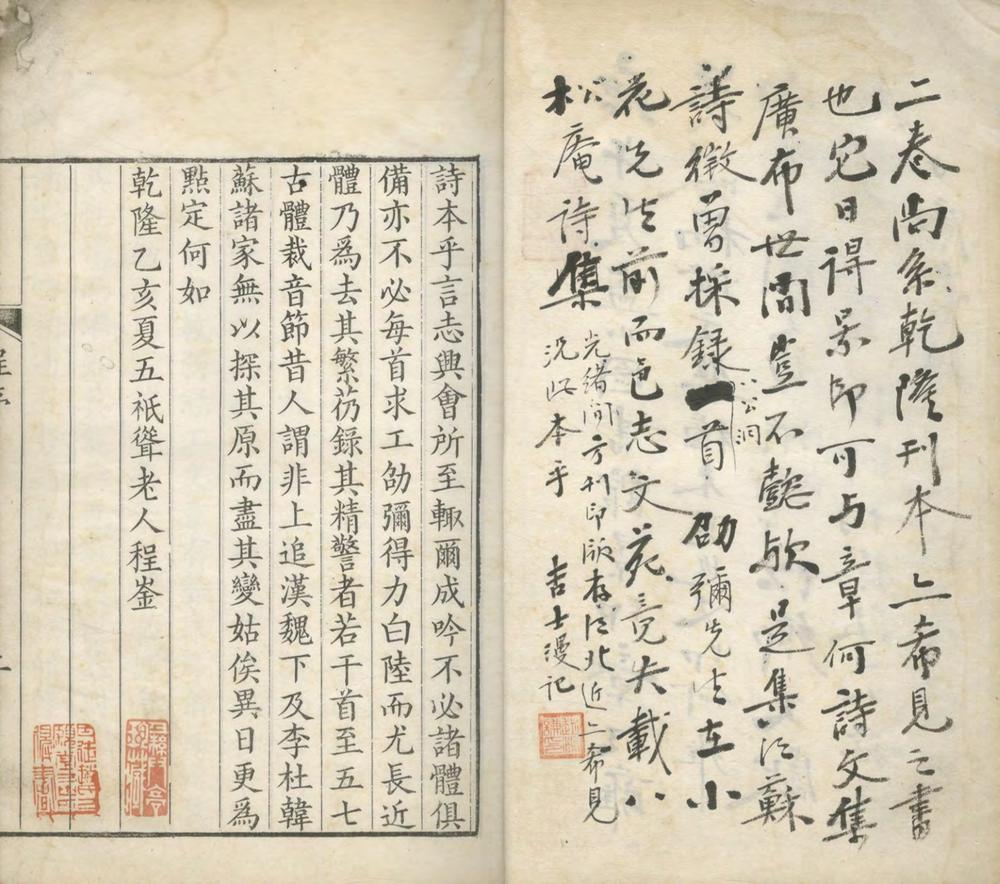 二卷尚系乾隆刊本亦希見之書
也它日得景印可与章何詩文集
廣布世間豈不懿歟是集江蘇
詩徵曾採錄一首劭彌先生在小
八公洞
花先生前而邑志文苑竟失載八
松庵詩集
光緒間方刊印版存江北近亦希見
況此本乎 吉士漫記
詩本乎言志興會所至輙爾成吟不必諸體俱
備亦不必每首求工劭彌得力白陸而尤長近
體乃為去其繁芿錄其精警者若干首至五七
古體裁音節昔人謂非上追漢魏下及李杜韓
蘇諸家無以探其原而盡其變姑俟異日更為
點定何如
乾隆乙亥夏五祇聳老人程崟
程序